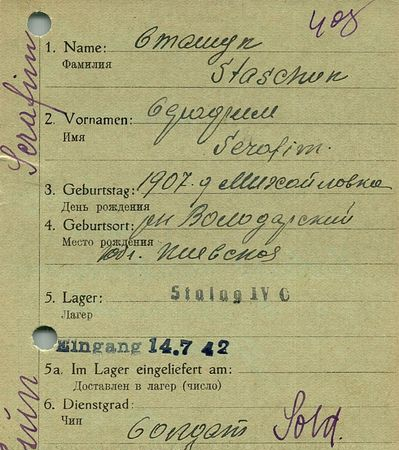 Serafim
1. Name: Сташук
Фамилия
Staschuk
2. Vornamen: Серафим
Имя
Serafim.
3. Geburtstag: 1907. д Михайловка
День рождения
4. Geburtsort: рн Володарский
Место рождения
обл. Киевская
5. Lager: Stalag IV C
Лагер
Eingang 14.7 42
5a. Im Lager eingeliefert am:
Доставлен в лагер (число)
6. Dienstgrad:
Чин
Солдат Sold.